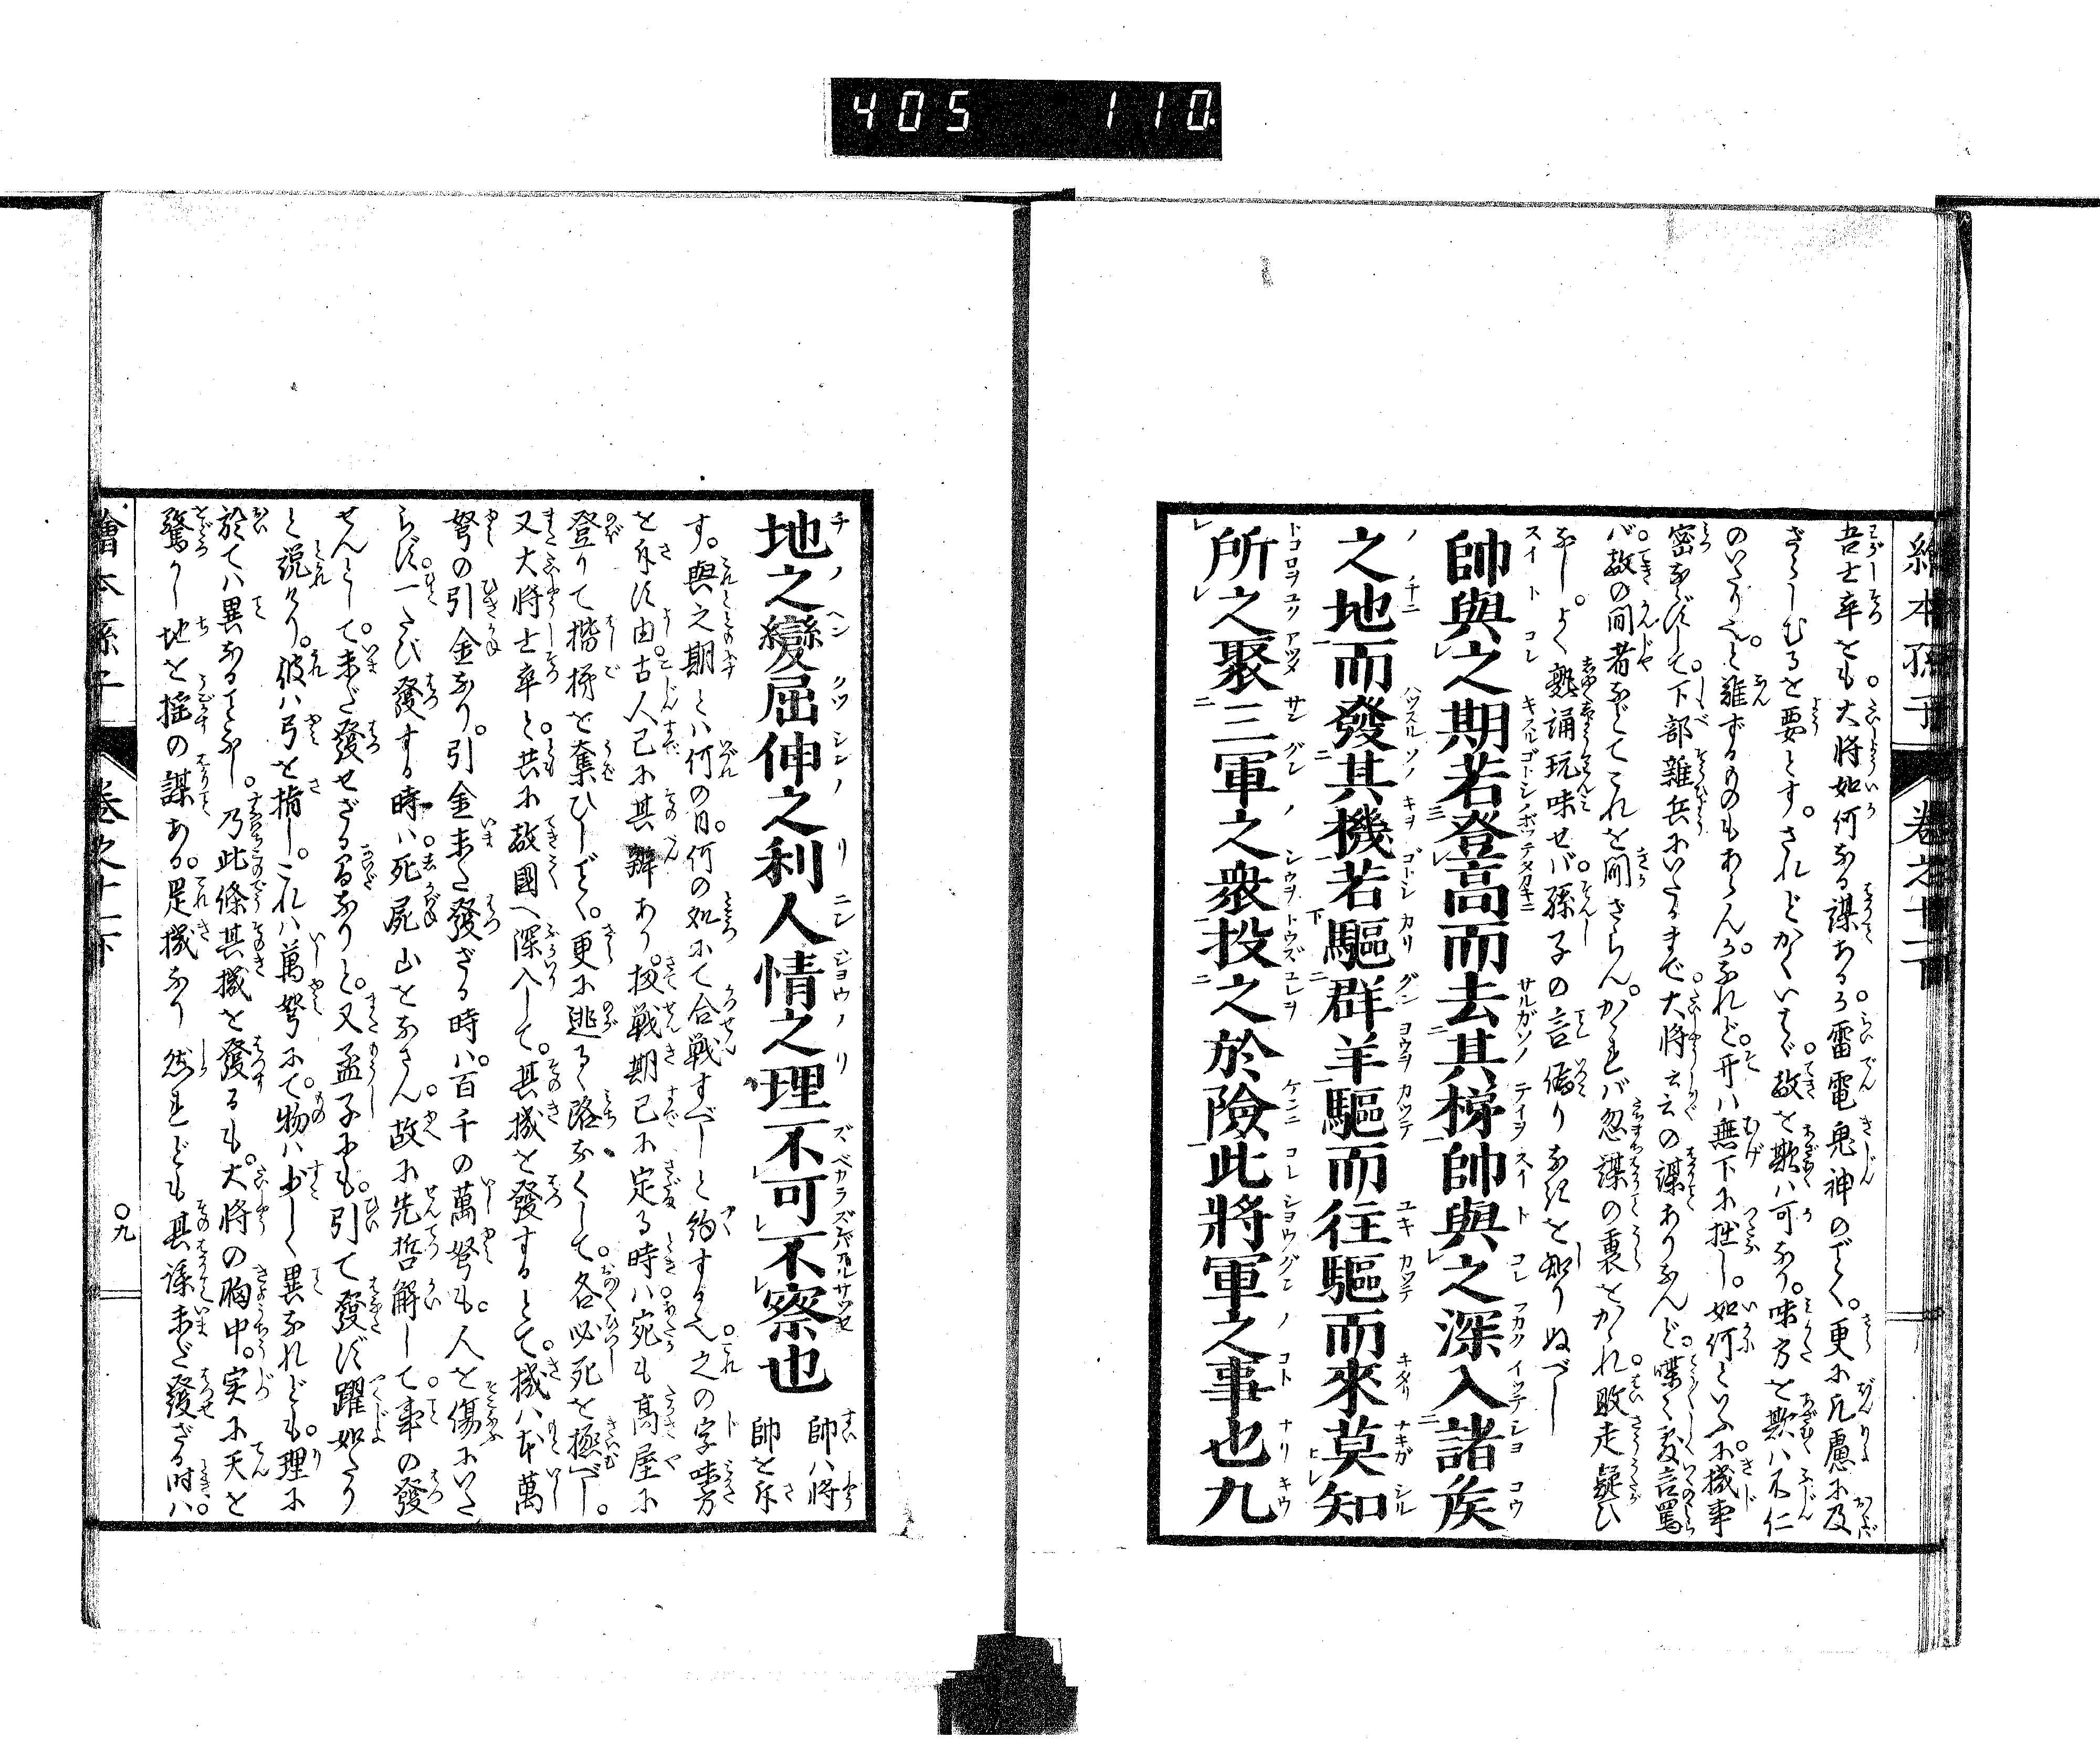 405 110
繪本孫子 卷之十一下
吾士卒をも。大将如何なる謀ある。雷電鬼神のごとく。更に凡慮に及
ざらしむるを要とす。されどかくいへば。敵を欺ハ可なり。味方を欺ハ不仁
のいたりと。難ずるものもあらん。なれど。开ハ無下に拙し。如何といふに。機事
密ならずして。下部雜兵にいたるまで。大将云云の謀ありなんど。喋々
バ。敵の間者などてこれを聞ざらん。かゝれバ忽謀の裏をかゝれ敗走疑ひ
なし。よく熟誦玩味せバ。孫子の言偽りなきを知りぬべし
帥與之期若登高而去其梯帥與之深入諸矦
之地而發其機若驅群羊驅而往驅而來莫知
所之聚三軍之衆投之於險此將軍之事也九
地之變屈伸之利人情之理不可不察也
帥ハ將
帥を斥
す。與之期とハ何の日。何の処にて合戦すべしと約する。之の字味方
を斥す由。古人已に其辨あり。扨戦期已に定る時ハ宛も高屋に
登りて揩梯を奪ひしごとく。更に逃る路なくして。各必死を極べし。
又大將士卒と。共に敵國へ深入して。其機を發するとて。機ハ本萬
弩の引金なり。引金未だ發ざる時ハ。百千の萬弩も。人を傷にいた
らず。一たび發する時ハ。死屍山をなさん。故に先哲解して。事の發
せんとして。未だ發せざる間なりと。又孟子にも。引て發ず躍如たり
と説り。彼ハ弓を指し。これハ萬弩にて。物ハ少しく異なれども。理に
於てハ異なる事なし。乃此條其機を發るも。大将の胸中。実に天を
驚かし地を揺の謀ある。是機なり然れども其謀未だ發ざる時ハ。
繪本孫子 卷之十一下 〇九